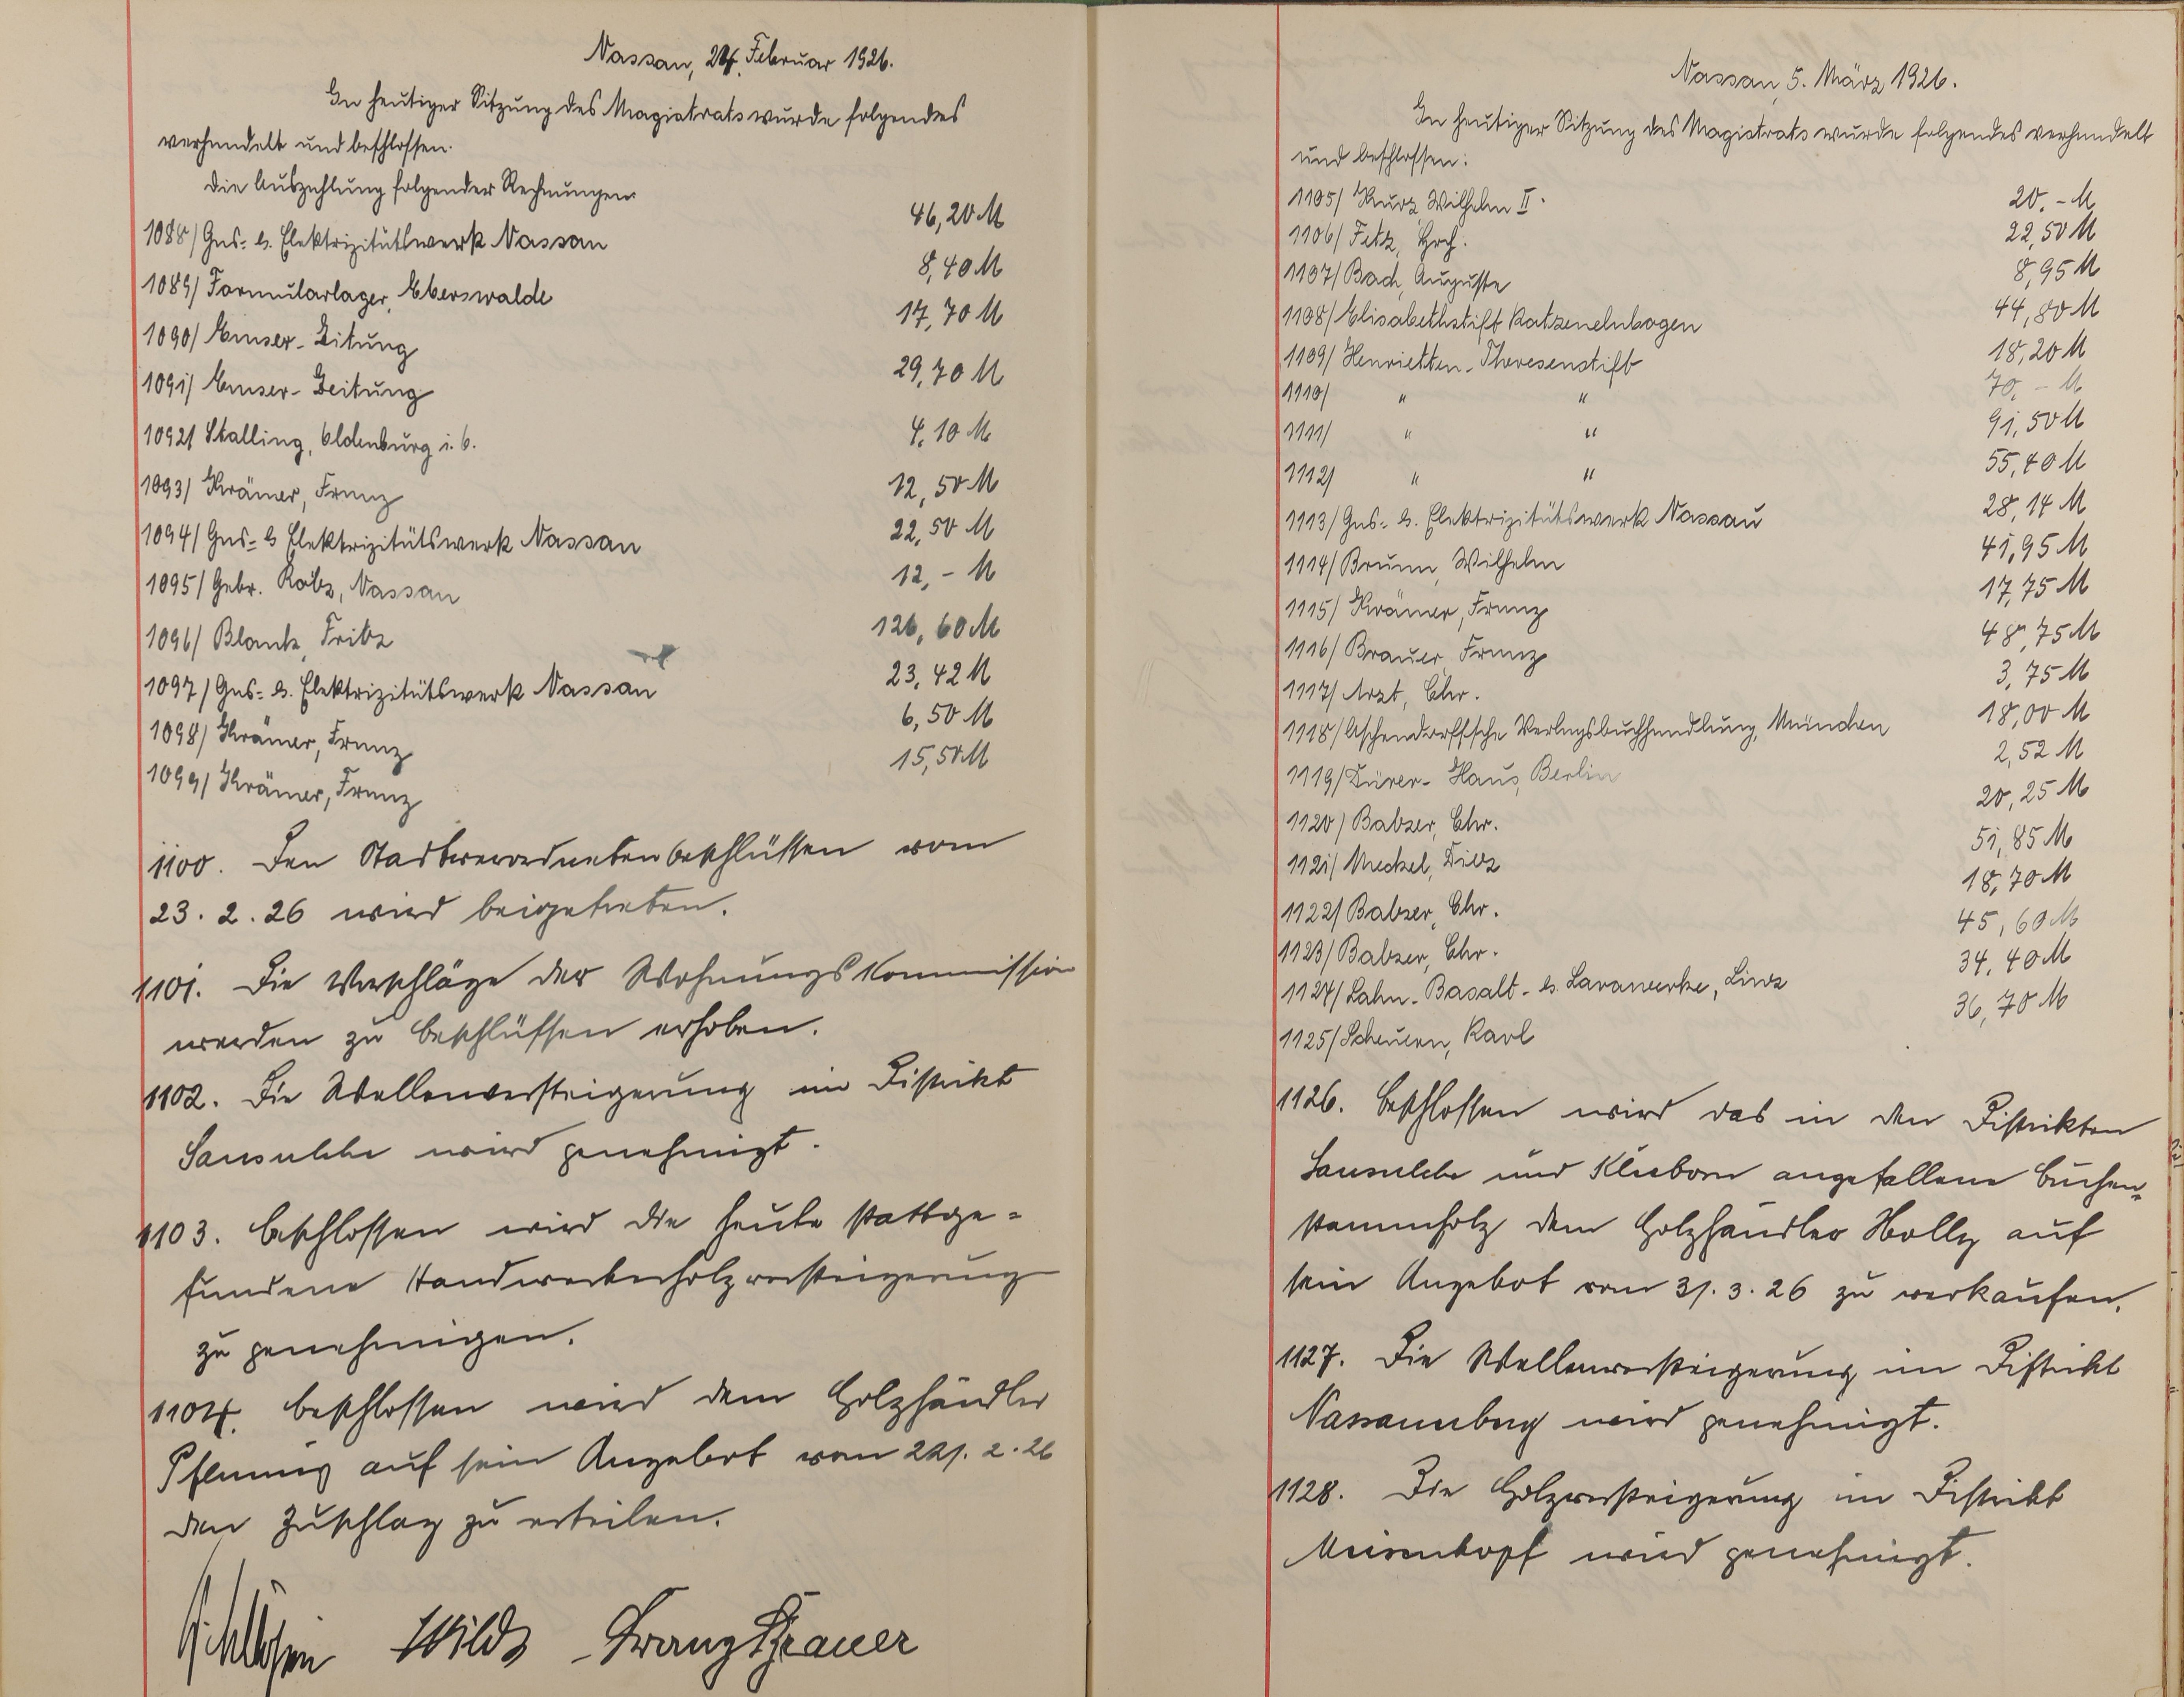 Nassau, 24. Februar 1926.
In heutiger Sitzung des Magistrats wurde folgendes
verhandelt und beschlossen.
Die Auszahlung folgender Rechnungen
1088/ Gas- u. Elektrizitätswerk Nassau 46,20 M
1089/ Formularlager, Eberswalde 8,40 M
1090/ Emser-Zeitung 17,70 M
1091/ Emser-Zeitung 29,70 M
1092/ Stalling, Oldenburg i. O. 4,10 M
1093/ Krämer, Franz 12,50 M
1094/ Gas- u Elektrizitätswerk Nassau 22,50 M
1095/ Gebr. Rabs, Nassau 12,- M
1096/ Blank, Fritz 126,60 M
1097/ Gas- u. Elektrizitätswerk Nassau 23,42 M
1098/ Krämer, Franz 6,50 M
1099/ Krämer, Franz 15,50 M
1100. Den Stadtverordnetenbeschlüssen vom
23.2.26 wird beigetreten.
1101. Die Vorschläge der Wohnungskommission
werden zu Beschlüssen erhoben.
1102. Die Wellenversteigerung im Distrikt
wird genehmigt.
1103. Beschlossen wird die heute stattge-
fundene Handwerkerholzversteigerung
zu genehmigen.
1104. Beschlossen wird dem Holzhändler
auf sein Angebot vom 2.26
den Zuschlag zu erteilen.
Franz Brauer
Nassau, 5. März 1926.
In heutiger Sitzung des Magistrats wurde folgendes verhandelt
und beschlossen:
1105/ Kurz Wilhelm II. 20.- M
1106/ Fetz, Hch. 22,50 M
1107/ Bach, Auguste 8,95 M
1108/ Elisabethstift Katzenelnbogen 44,80 M
1109/ Henrietten-Theresenstift 18,20 M
1110/ " " 70,- M
1111/ " " 91,50 M
1112/ " " 55,40 M
1113/ Gas- u. Elektrizitätswerk Nassau 28,14 M
1114/ Brunn, Wilhelm 41,95 M
1115/ Krämer, Franz 17,75 M
1116/ Brauer, Franz 48,75 M
1117/ Arzt, Chr. 3,75 M
1118/ Aschendorffsche Verlagsbuchhandlung, München 18,00 M
1119/ Dürer-Haus, Berlin 2,52 M
1120/ Balzer, Chr. 20,25 M
1121/ Meckel, Diez 51,85 M
1122/ Balzer, Chr. 18,70 M
1123/ Balzer, Chr. 45,60 M
1124/ Lahn-Basalt- u. Lavawerke, Linz 34,40 M
1125/ Scheuern, Karl 36,70 M
1126. Beschlossen wird das in den Distrikten
und angefallene Buchen-
stammholz dem Holzhändler Holly auf
sein Angebot vom 31.3.26 zu verkaufen.
1127. Die Wellenversteigerung im Distrikt
Nassauerberg wird genehmigt.
1128. Die Holzversteigerung im Distrikt
Meisenkopf wird genehmigt.